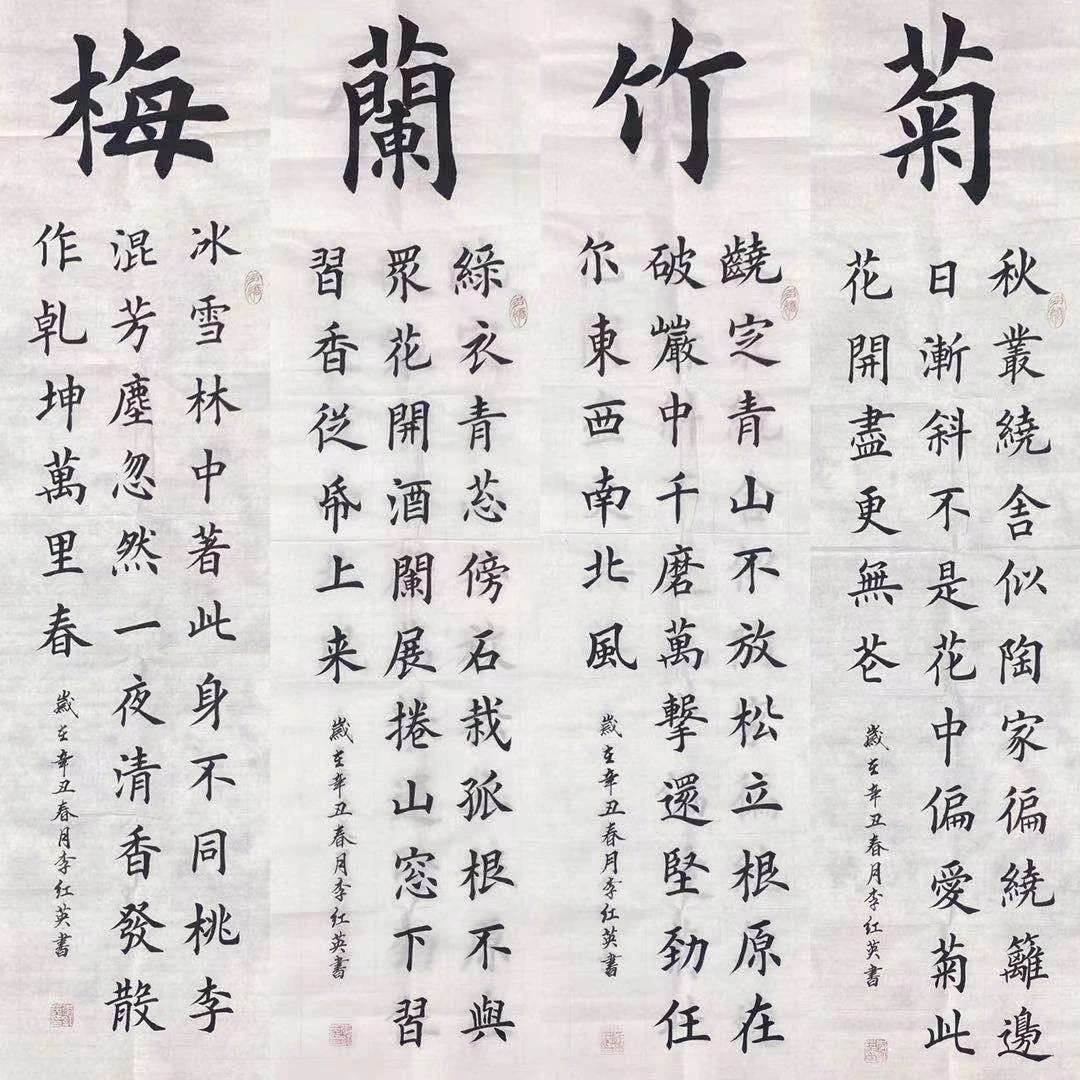 梅
冰雪林中著此身不同桃李
混芳塵忽然一夜清香發散
作乹坤萬里春
歲在辛丑春月李红英書
蘭
綠衣青葱傍石栽孤根不與
眾花開酒闌展捲山窓下習
習香從帋上来
歲在辛丑春月李红英書
竹
䶧定青山不放松立根原在
破巖中千磨萬擊還堅劲任
尔東西南北風
歲在辛丑春月李红英書
菊
秋叢繞舍似陶家徧繞籬邊
日漸斜不是花中偏愛菊此
花開盡更無花
歲在辛丑春月李红英書